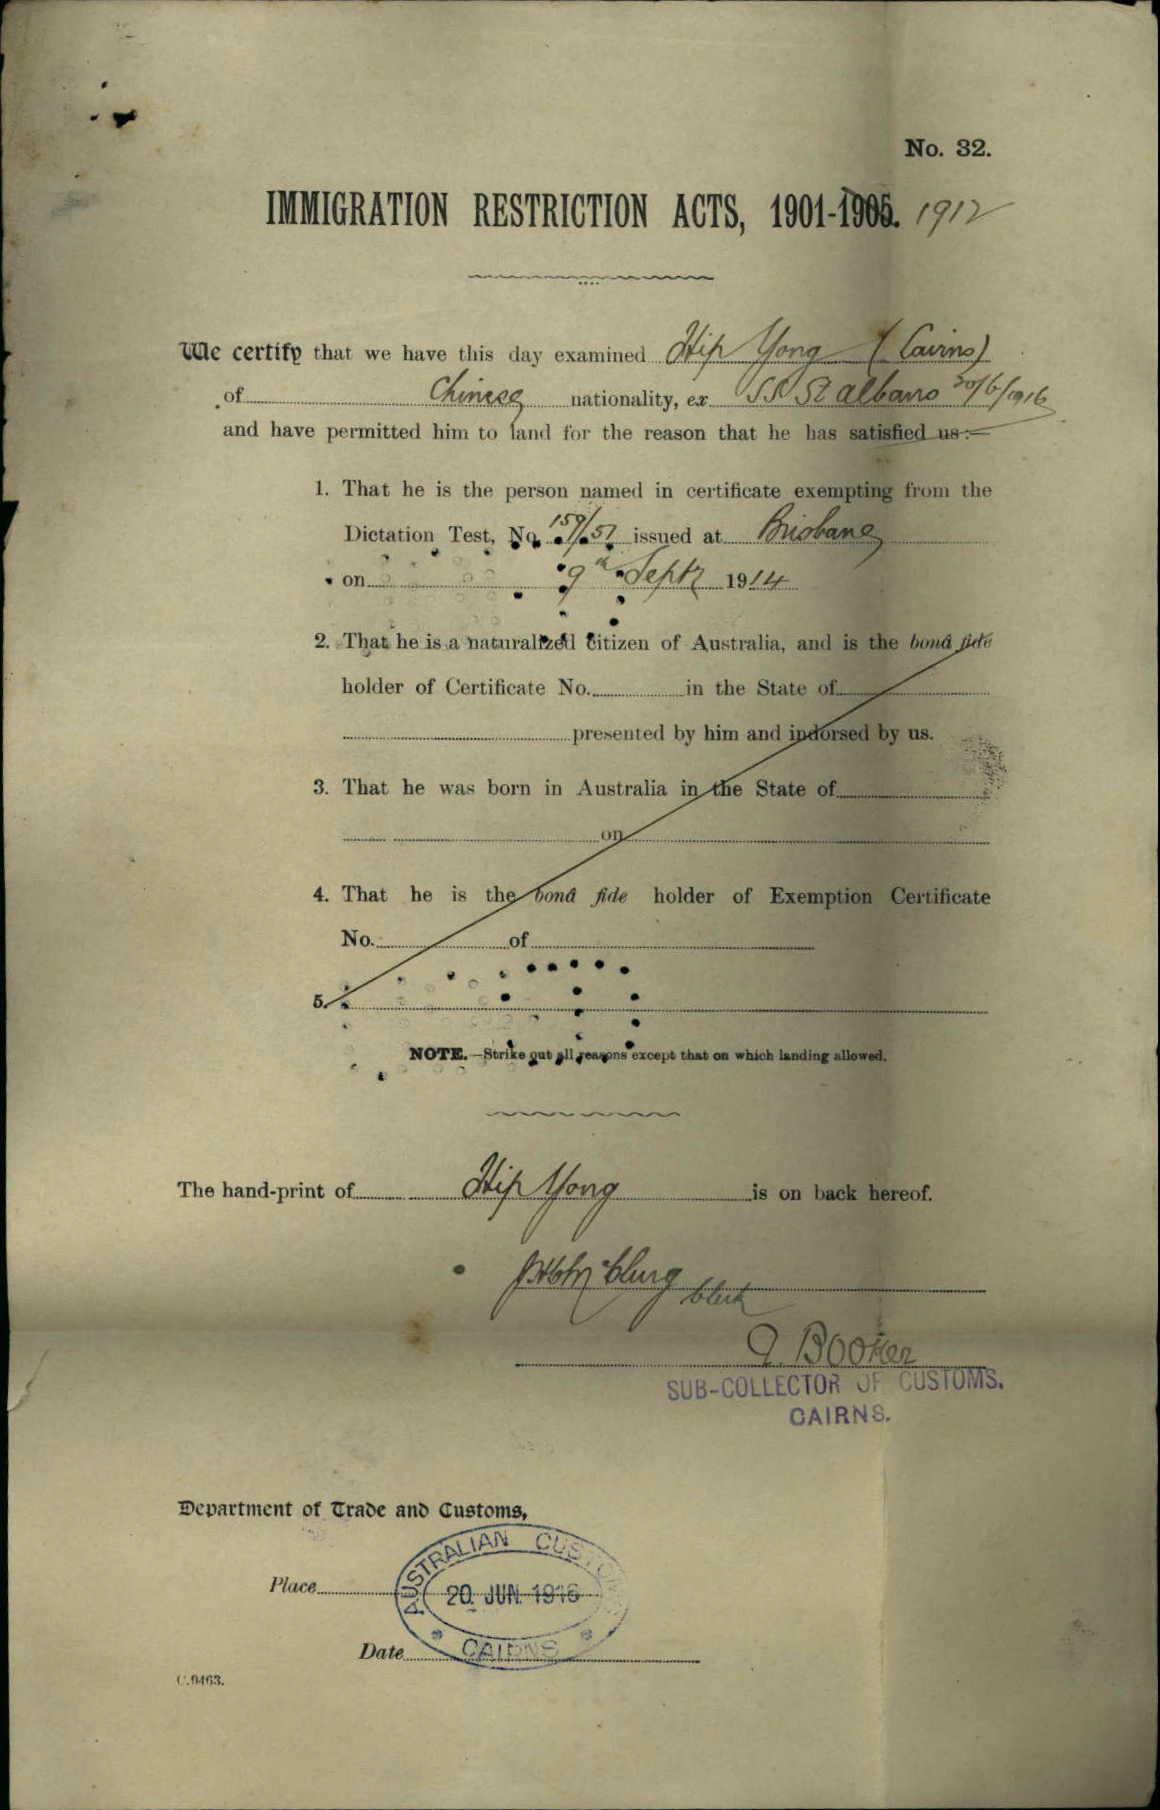 No. 32.
IMMIGRATION RESTRICTION ACTS, 1901-1905. 1912
We certify that we have this day examined Hip Yong (Cairns)
of Chinese nationality, ex SS St Albans 20/6/1916
and have permitted him to land for the reason that he has satisfied us:—
1. That he is the person named in certificate exempting from the
Dictation Test, No. 159/51 issued at Brisbane
on 9th Septr 1914
2. That he is a naturalized citizen of Australia, and is the bonâ fide
holder of Certificate No. in the State of
presented by him and indorsed by us.
3. That he was born in Australia in the State of
on
4. That he is the bonâ fide holder of Exemption Certificate
No. of
5.
NOTE.—Strike out all reasons except that on which landing allowed.
The hand-print of Hip Yong is on back hereof.
McClurg
Clerk
Booker
SUB-COLLECTOR OF CUSTOMS.
CAIRNS.
Department of Trade and Customs,
AUSTRALIAN CUSTOMS
Place
20. JUN. 1916
CAIRNS
Date
C.9463.